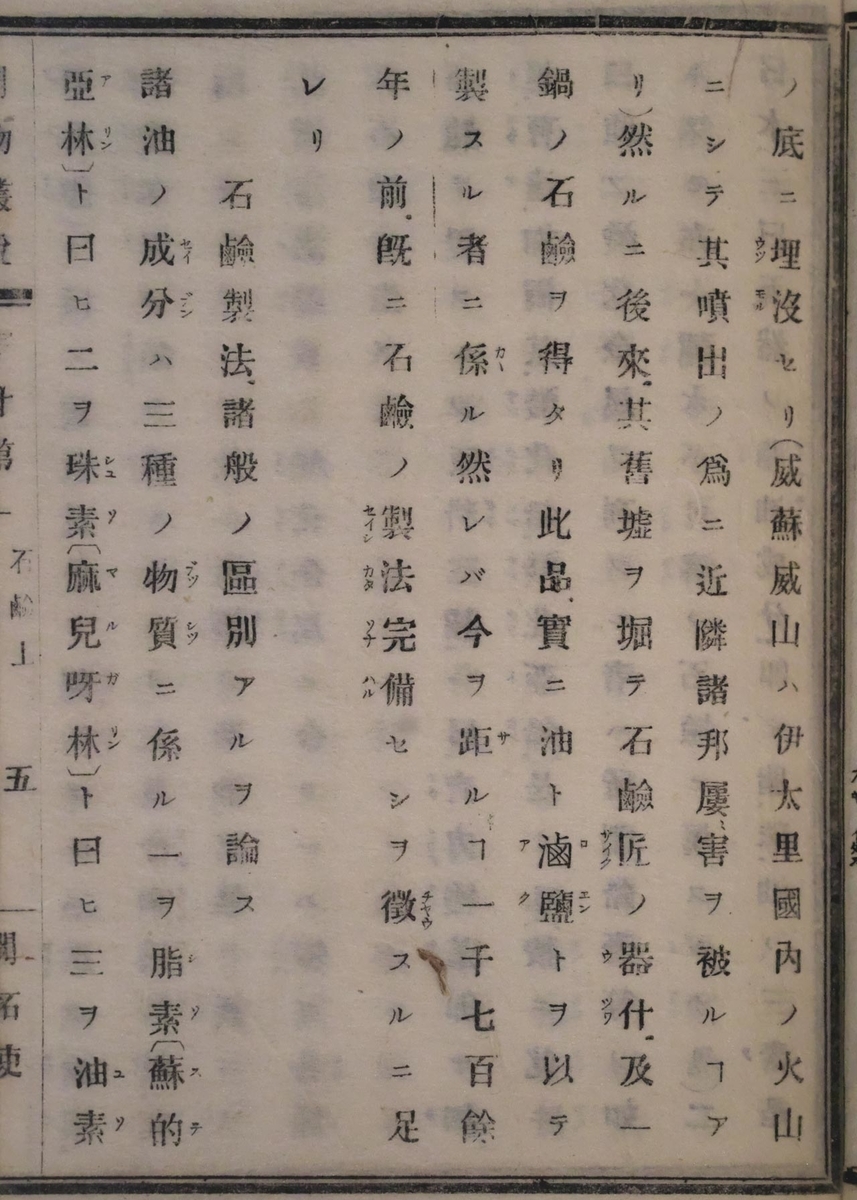 ノ底ニ埋沒セリ(威蘇威山ハ伊太里國內ノ火山
ニシテ其噴出ノ爲ニ近隣諸邦屢害ヲ被ルヿア
リ)然ルニ後來其舊墟ヲ堀テ石鹼匠ノ器什及一
鍋ノ石鹼ヲ得タリ此品實ニ油ト滷鹽トヲ以テ
製スル者ニ係ル然レバ今ヲ距ルヿ一千七百餘
年ノ前旣ニ石鹼ノ製法完備セシヲ徵スルニ足
レリ
石鹼製法諸般ノ區別アルヲ論ス
諸油ノ成分ハ三種ノ物質ニ係ル一ヲ脂素(蘇的
亞林)ト曰ヒ二ヲ珠素(麻兒呀林)ト曰ヒ三ヲ油素
石鹼上
五
開拓使